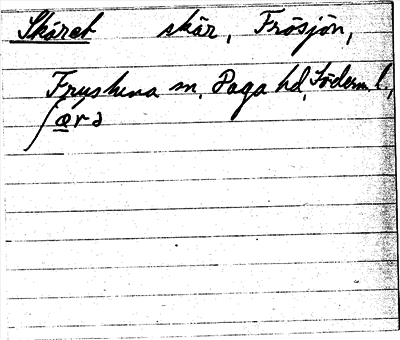 Skäret skär, Frösjön,
Frustuna sn, Daga hd, Söderm. l.,
ʃærə